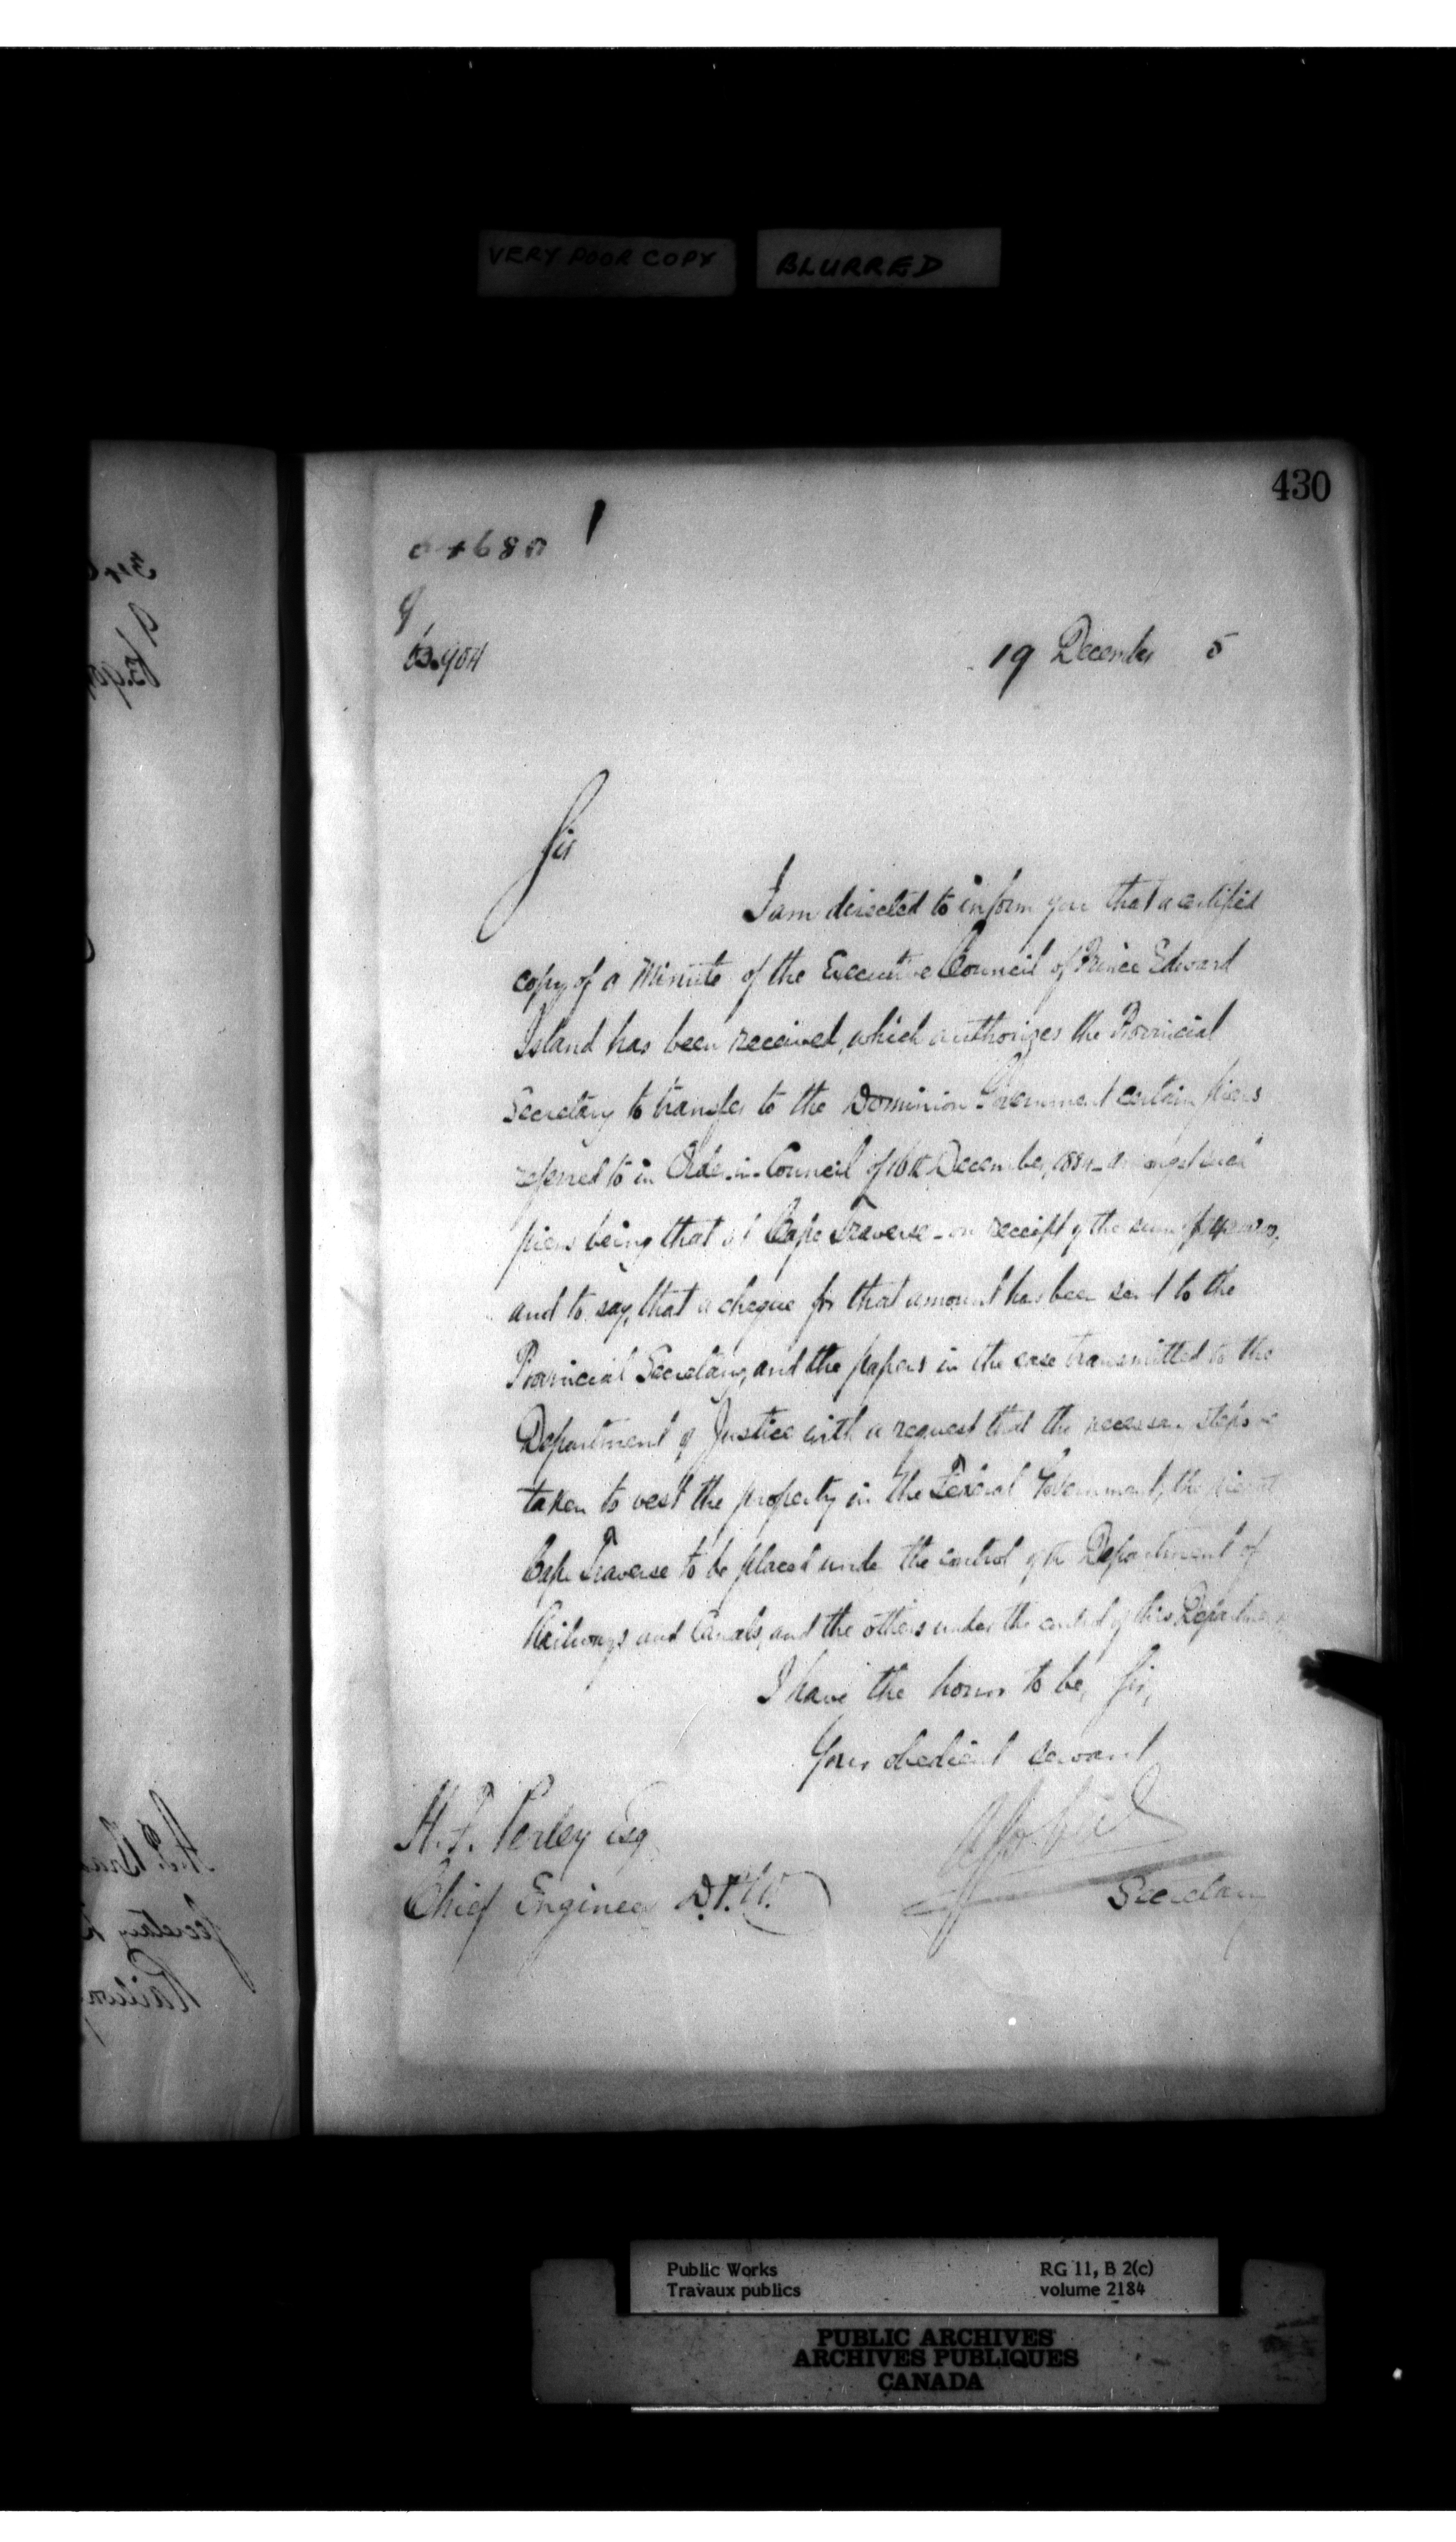 VERY POOR COPY BLURRED
430
19 December 5
Sir
I am directed to inform you that a certified
copy of a Minute of the Executive Council of Prince Edward
Island has been received, which authorizes the Provincial
Secretary to transfer to the Dominion Government certain piers
referred to in Order in Council of 16th December, 1884 amongst such
piers being that at Cape Traverse - on receipt of the sum of
and to say, that a cheque for that amount has been sent to the
Provincial Secretary, and the papers in the case transmitted to the
Department of Justice with a request that the necessary steps be
taken to vest the property in the Federal Government, the pier at
Cape Traverse to be placed under the control of the Department of
Railways and Canals, and the others under the control of this Department
I have the honor to be, Sir,
Your obedient servant
H. F. Perley Esq
Chief Engineer D.P.W.
Secretary
Public Works RG 11, B 2(c)
Travaux publics volume 2184
PUBLIC ARCHIVES
ARCHIVES PUBLIQUES
CANADA